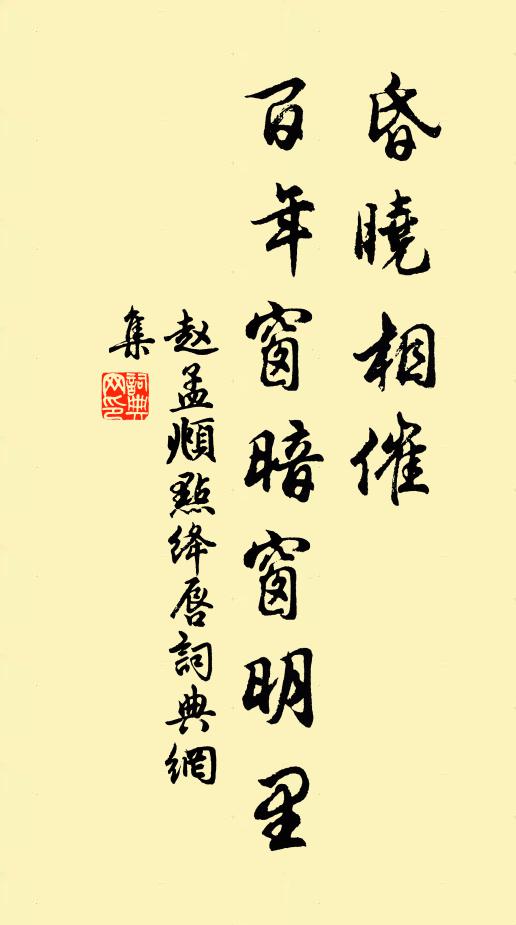 昏曉相催
百年窗暗窗明里
赵孟頫點绛唇詞典網
集
詞典
网印